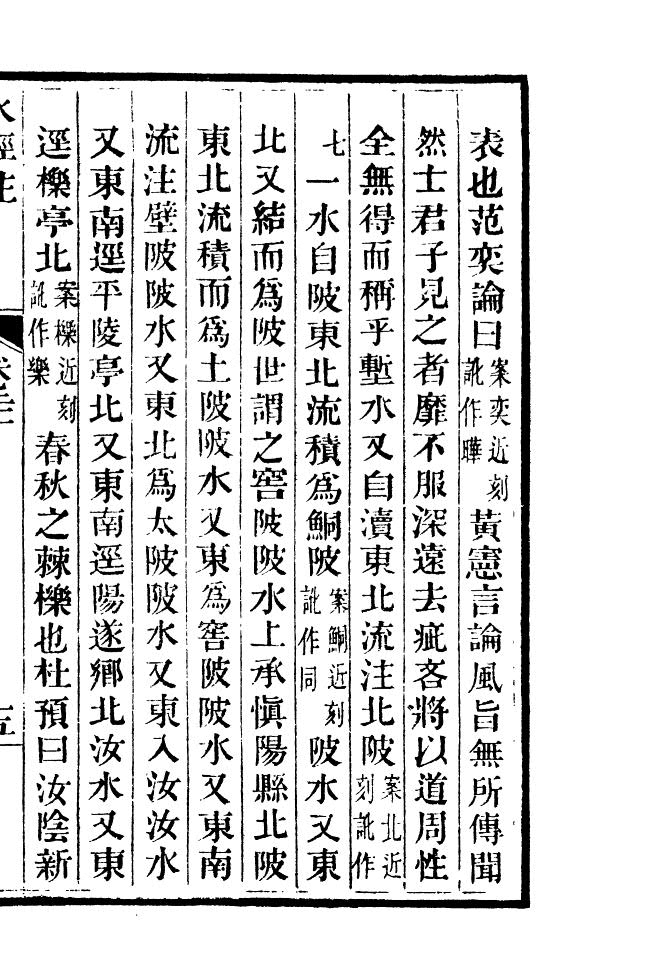 表也范奕論曰案奕近刻訛作曄黃憲言論風旨無所傳聞
然士君子見之者靡不服深遠去疵吝將以道周性
全無得而稱乎塹水又自瀆東北流注北陂案北近刻訛作
七一水自陂東北流積爲鮦陂案鮦近刻訛作同陂水又東
北又結而爲陂世謂之窖陂陂水上承愼陽縣北陂
東北流積而爲土陂陂水又東爲窖陂陂水又東南
流注壁陂陂水又東北爲太陂陂水又東入汝汝水
又東南逕平陵亭北又東南逕陽遂鄉北汝水又東
逕櫟亭北案櫟近刻訛作樂春秋之棘櫟也杜預曰汝陰新
水經注 卷二十一 五